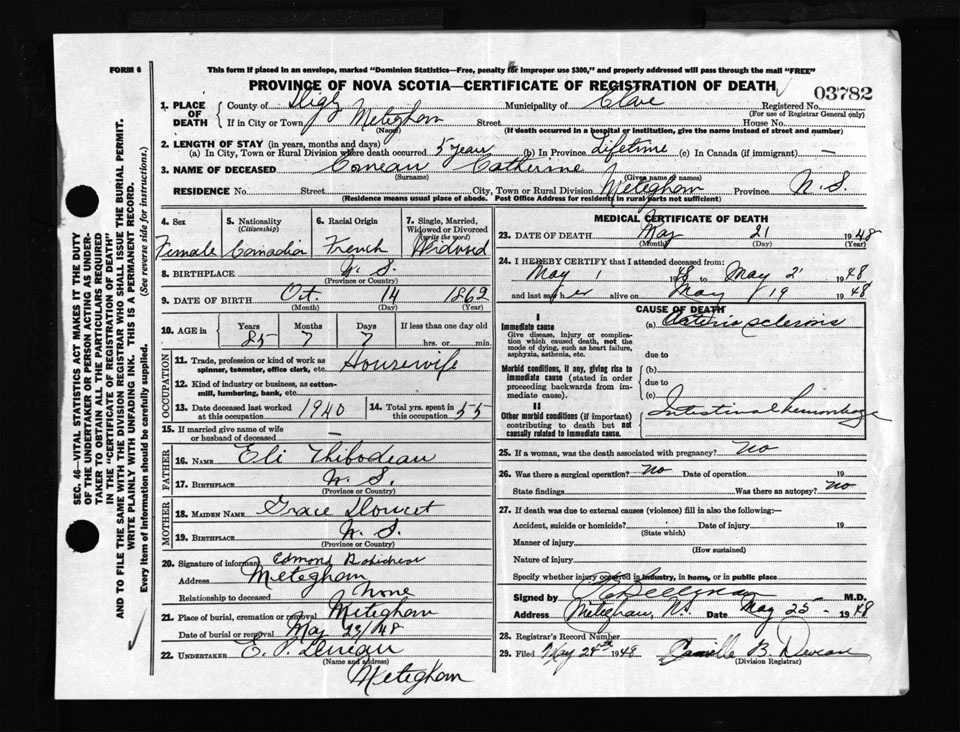 FORM 6
This form if placed in an envelope, marked "Dominion Statistics—Free, penalty for improper use $300," and properly addressed will pass through the mail "FREE"
PROVINCE OF NOVA SCOTIA—CERTIFICATE OF REGISTRATION OF DEATH
03782
1. PLACE OF DEATH
County of Digby Municipality of Clare Registered No.
(For use of Registrar General only)
If in City or Town Meteghan Street House No.
(Name) (If death occurred in a hospital or institution, give the name instead of street and number)
2. LENGTH OF STAY (in years, months and days)
(a) In City, Town or Rural Division where death occurred 5 years (b) In Province Lifetime (c) In Canada (if immigrant) —
3. NAME OF DECEASED Comeau Catherine
(Surname) (Given name or names)
RESIDENCE No. Street City, Town or Rural Division Meteghan Province N. S.
(Residence means usual place of abode. Post Office Address for residents in rural parts not sufficient)
4. Sex
Female
5. Nationality
(Citizenship)
Canadian
6. Racial Origin
French
7. Single, Married, Widowed or Divorced
(write the word)
Widowed
8. BIRTHPLACE N. S.
(Province or Country)
9. DATE OF BIRTH Oct. 14 1862
(Month) (Day) (Year)
10. AGE in Years Months Days If less than one day old
85 7 7 hrs. or min.
OCCUPATION
11. Trade, profession or kind of work as spinner, teamster, office clerk, etc. Housewife
12. Kind of industry or business, as cotton-mill, lumbering, bank, etc.
13. Date deceased last worked at this occupation 1940
14. Total yrs. spent in this occupation 55
15. If married give name of wife or husband of deceased —
FATHER
16. NAME Eli Thibodeau
17. BIRTHPLACE N. S.
(Province or Country)
MOTHER
18. MAIDEN NAME Grace Doucet
19. BIRTHPLACE N. S.
(Province or Country)
20. Signature of informant Edmond Robicheau
Address Meteghan
Relationship to deceased None
21. Place of burial, cremation or removal Meteghan
Date of burial or removal May 23/48
22. UNDERTAKER E. P.
(Name and address)
Meteghan
MEDICAL CERTIFICATE OF DEATH
23. DATE OF DEATH May 21 1948
(Month) (Day) (Year)
24. I HEREBY CERTIFY that I attended deceased from:
May 1 1948 to May 21 1948
and last saw her alive on May 19 1948
CAUSE OF DEATH
I
Immediate cause (a) Arteriosclerosis
Give disease, injury or complication which caused death, not the mode of dying, such as heart failure, asphyxia, asthenia, etc.
due to
Morbid conditions, if any, giving rise to immediate cause (stated in order proceeding backwards from immediate cause).
(b)
due to
(c)
II
Other morbid conditions (if important) contributing to death but not causally related to immediate cause.
Intestinal hemorrhage
25. If a woman, was the death associated with pregnancy? No
26. Was there a surgical operation? No Date of operation 19
State findings Was there an autopsy? No
27. If death was due to external causes (violence) fill in also the following:—
Accident, suicide or homicide? Date of injury 19
(State which)
Manner of injury
(How sustained)
Nature of injury
Specify whether injury occurred in industry, in home, or in public place
Signed by M.D.
Address Meteghan, N.S. Date May 25 - 1948
28. Registrar's Record Number
29. Filed May 24th 1948 Camille B.
(Division Registrar)
SEC. 46—VITAL STATISTICS ACT MAKES IT THE DUTY
OF THE UNDERTAKER OR PERSON ACTING AS UNDER-
TAKER TO OBTAIN ALL THE PARTICULARS REQUIRED
IN THE "CERTIFICATE OF REGISTRATION OF DEATH"
AND TO FILE THE SAME WITH THE DIVISION REGISTRAR WHO SHALL ISSUE THE BURIAL PERMIT.
WRITE PLAINLY WITH UNFADING INK. THIS IS A PERMANENT RECORD.
Every item of Information should be carefully supplied. (See reverse side for instructions.)